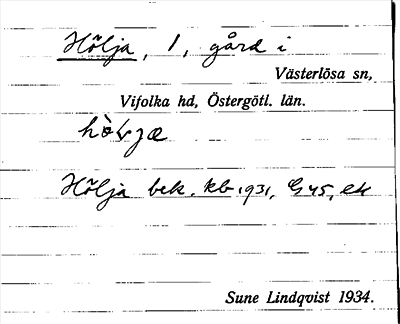 Hölja, 1, gård i
Västerlösa sn,
Vifolka hd, Östergötl. län.
Hölja bek. kb 1931, G 45, ek
Sune Lindqvist 1934.